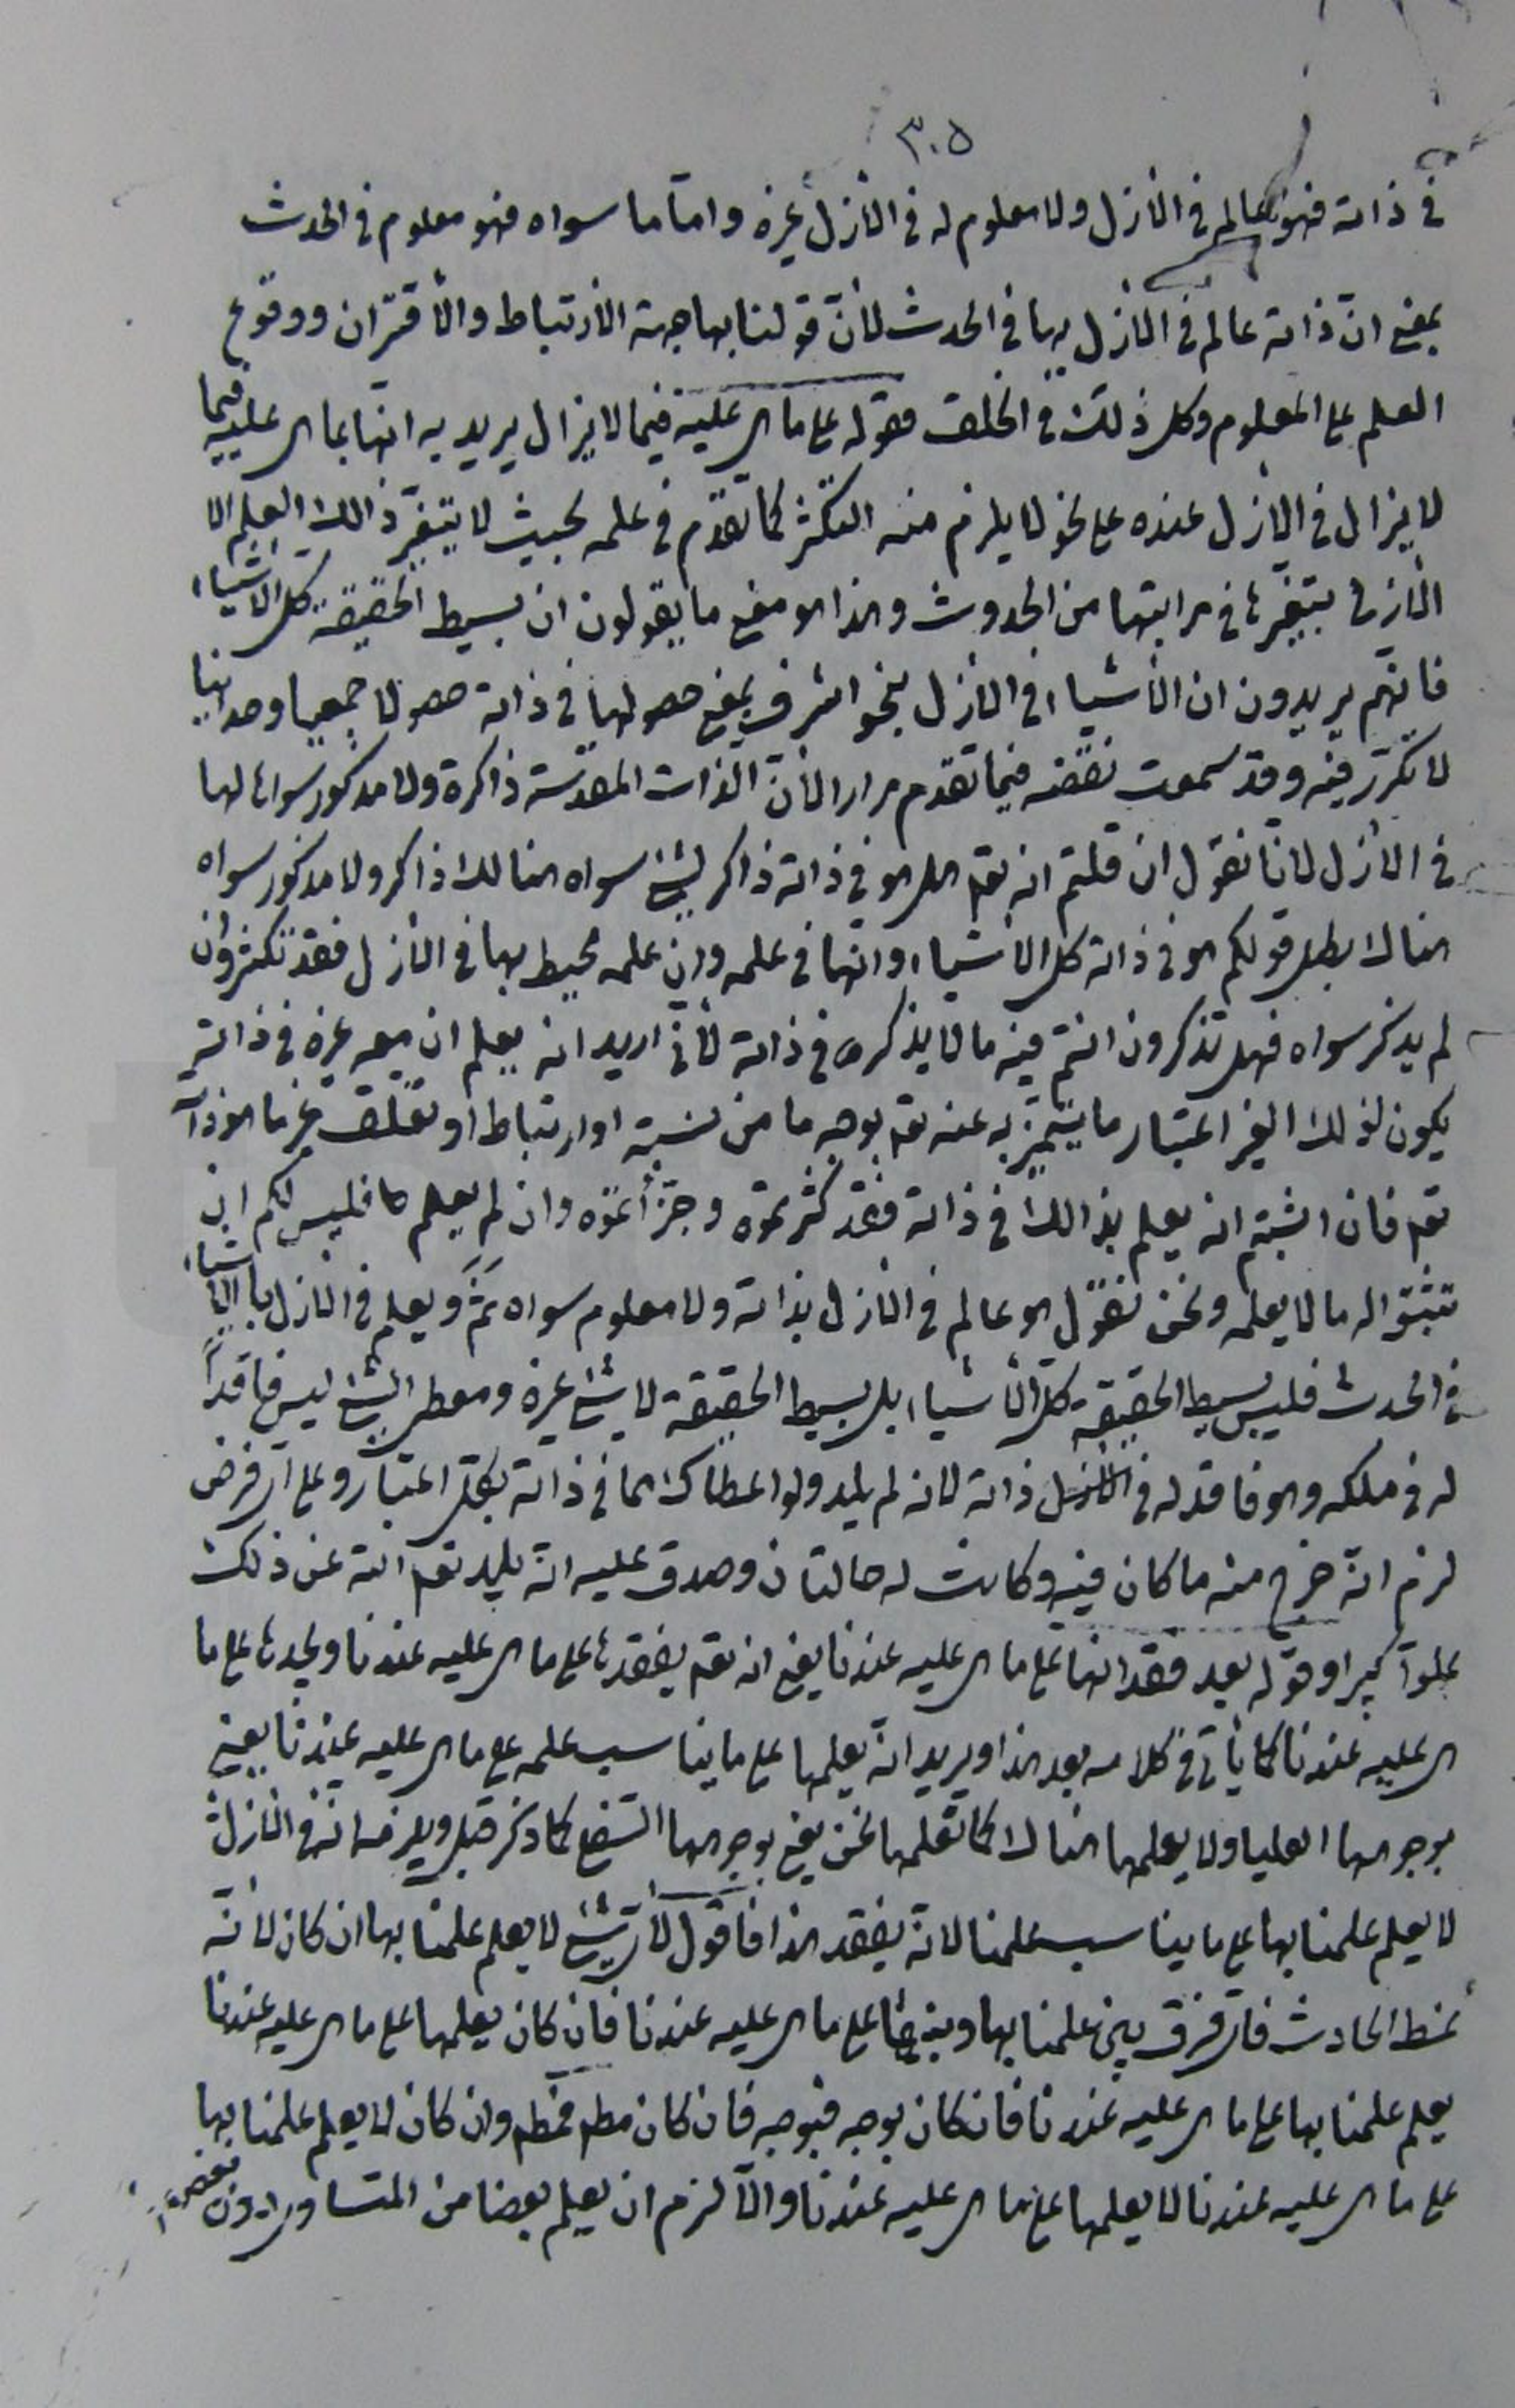 ٣٠٥
في ذاته فهو عالم في الأزل ولا معلوم له في الأزل غيره واما ما سواه فهو معلوم في الحدث
بمعنى انّ ذاته عالم في الأزل بها في الحدث لأنّ قولنا بها جهة الأرتباط والأقتران ووقوع
العلم على المعلوم وكل ذلك في الخلق فقوله على ما هي عليه فيما لا يزال يريد به انها بما هي عليه فيما
لا يزال في الأزل عنده على نحو لا يلزم منه التكثر كما تقدم في علمه بحيث لا يتغيّر ذالك العلم الا
الأزلي بتغيّرها في مراتبها من الحدوث وهذا هو معنى ما يقولون ان بسيط الحقيقة كل الأشياء
فانهم يريدون ان الأشياء في الأزل بنحو اشرف بمعنى حصولها في ذاته حصولا جمعيا وحدانيا
لا تكرّر فيه وقد سمعت نقضه فيما تقدم مرارا لأنّ الذات المقدّسة ذاكرة ولا مذكور سواها لها
في الأزل لانّا نقول ان قلتم انه تع هل هو في ذاته ذاكر لشيئ سواه هنالك ذاكر ولا مذكور سواه
هناك بطل قولكم هو في ذاته كل الأشياء وانها في علمه وان علمه محيط بها في الأزل فقد تكثر وان
لم يذكر سواه فهل تذكرون انتم فيه ما لا يذكره في ذاته لأنّي اريد انه يعلم ان معه غيره في ذاته
يكون لذلك الغير اعتبار ما يتميّز به عنه تع بوجه ما من نسبة او ارتباط او تعلق غير ما هو ذاته
تع فان اثبتم انه يعلم بذالك في ذاته فقد كثرتموه وجزّأتموه وان لم يعلم ها فليس لكم ان
تثبتوا له ما لا يعلمه ونحن نقول هو عالم في الأزل بذاته ولا معلوم سواه ثَمَّ ويعلم في الأزل بالأشياء
في الحدث فليس بسيط الحقيقة كل الأشياء بل بسيط الحقيقة لا شيئ غيره ومعطي الشيئ ليس فاقداً
له في ملكه وهو فاقد له في الأزل ذاته لانه لم يلد ولو اعطاك مما في ذاته بكل اعتبار وعلى اي فرض
لزم انه خرج منه ما كان فيه وكانت له حالتان وصدق عليه انه يلد تع الله عن ذلك
علوّا كبيرا وقوله بعد فقدانها على ما هي عليه عندنا يعني انه تع يفقدها على ما هي عليه عندنا ويجدها على ما
هي عليه عندنا كما يأتي في كلامه بعد هذا ويريد انه يعلمها على ما يناسب علمه على ما هي عليه عندنا يعني
بوجوهها العليا ولا يعلمها هناك كما نعلمها نحن يعني بوجوهها السفلى كما ذكر قبل ويلزمه انه في الأزل
لا يعلم علمنا بها على ما يناسب علمنا لانه يفقد هذا فاقول لأي شيئ لا يعلم علمنا بها ان كان لأنه
نمط الحادث فاي فرق بين علمنا بها وبينها على ما هي عليه عندنا فان كان يعلمها على ما هي عليه عندنا
يعلم علمنا بها على ما هي عليه عندنا فان كان بوجه فبوجه فان كان مطم فمطم وان كان لا يعلم علمنا بها
على ما هي عليه عندنا لا يعلمها على ما هي عليه عندنا والّا لزم ان يعلم بعضا من المتساوي دون بعض